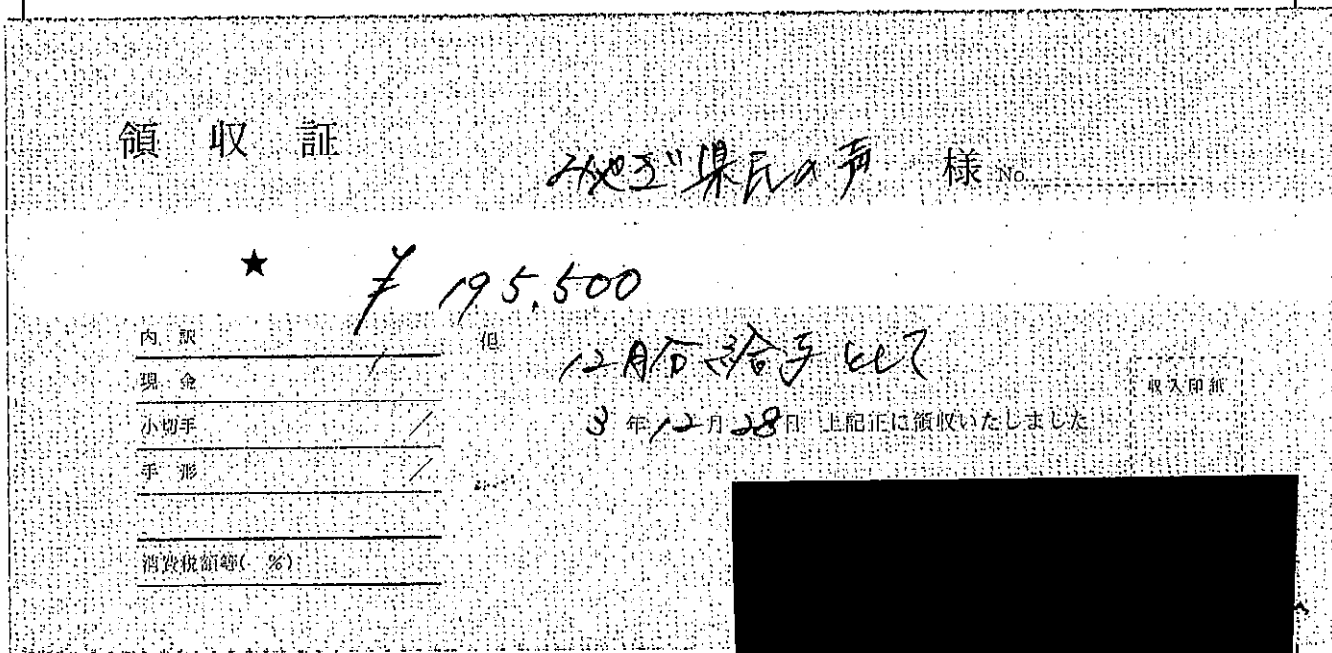 領収証
みやぎ県民の声 様 No.
★ ¥195,500
内訳
現金
小切手
手形
消費税額等( %)
但 12月分給与として
3年12月28日 上記正に領収いたしました
収入印紙